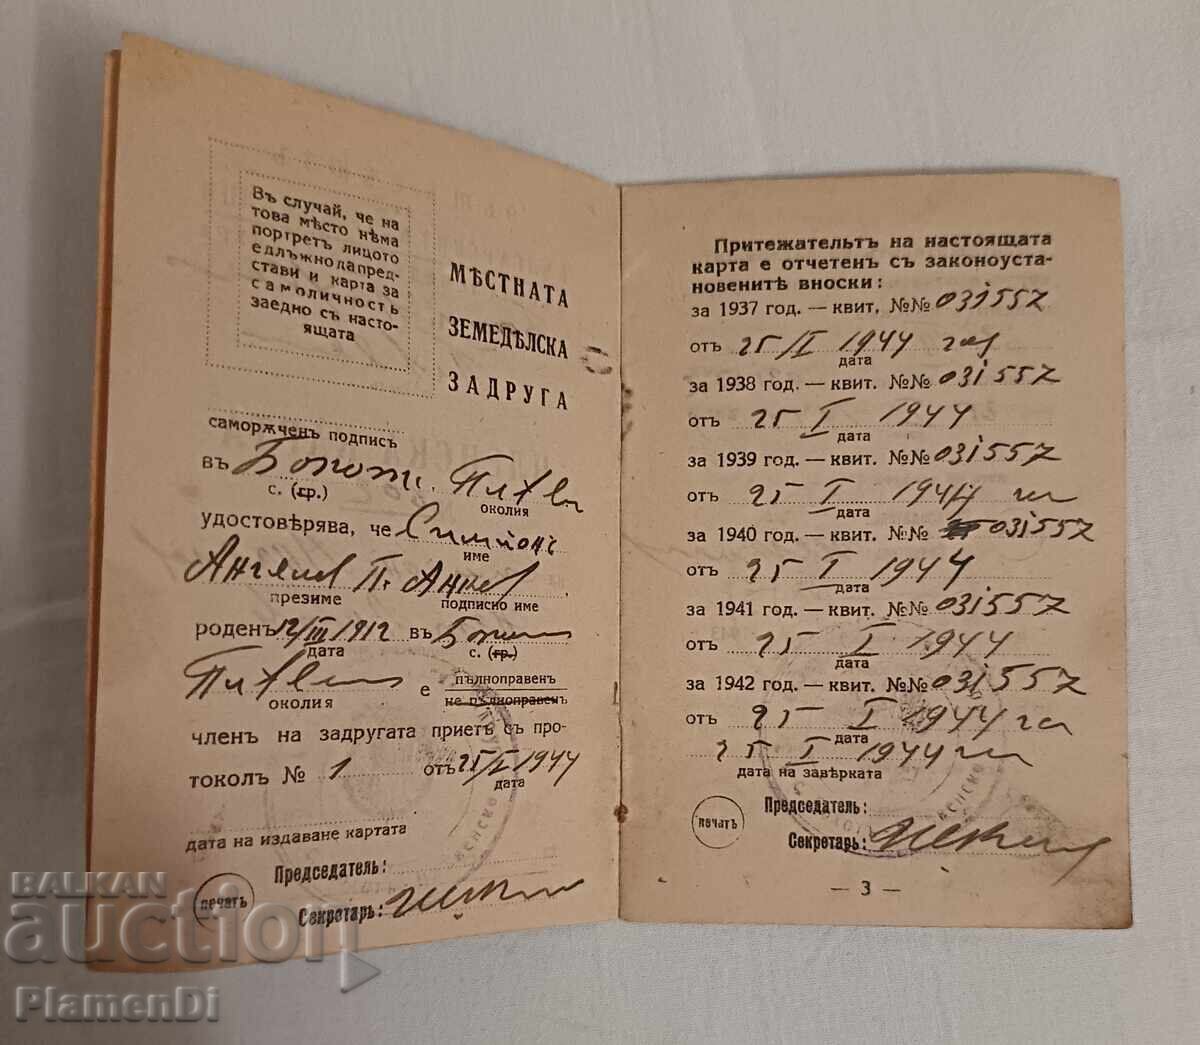 Въ случай, че на
това мѣсто нѣма
портретъ лицото
е длъжно да пред-
стави и карта за
самоличность
заедно съ насто-
ящата
МѢСТНАТА
ЗЕМЕДѢЛСКА
ЗАДРУГА
саморѫченъ подпись
въ
с. (гр.) околия
удостовѣрява, че Симеонъ
име
Ангелов П. Ангелов
презиме подписно име
роденъ 12/III 1912 въ
дата с. (гр.)
е пълноправенъ
околия не пълноправенъ
членъ на задругата приетъ съ про-
токолъ № 1 отъ 25/I 1944
дата
дата на издаване картата
Председатель:
печать
Секретарь:
Притежательтъ на настоящата
карта е отчетенъ съ законоуста-
новенитѣ вноски:
за 1937 год. — квит. №№ 031557
отъ 25/I 1944
дата
за 1938 год. — квит. №№ 031557
отъ 25 I 1944
дата
за 1939 год. — квит. №№ 031557
отъ 25 I 1944
дата
за 1940 год. — квит. №№ 031557
отъ 25 I 1944
дата
за 1941 год. — квит. №№ 031557
отъ 25 I 1944
дата
за 1942 год. — квит. №№ 031557
отъ 25 I 1944
дата
25 I 1944
дата на завѣрката
Председатель:
печать
Секретарь:
— 3 —
BALKAN
auction
PlamenDi